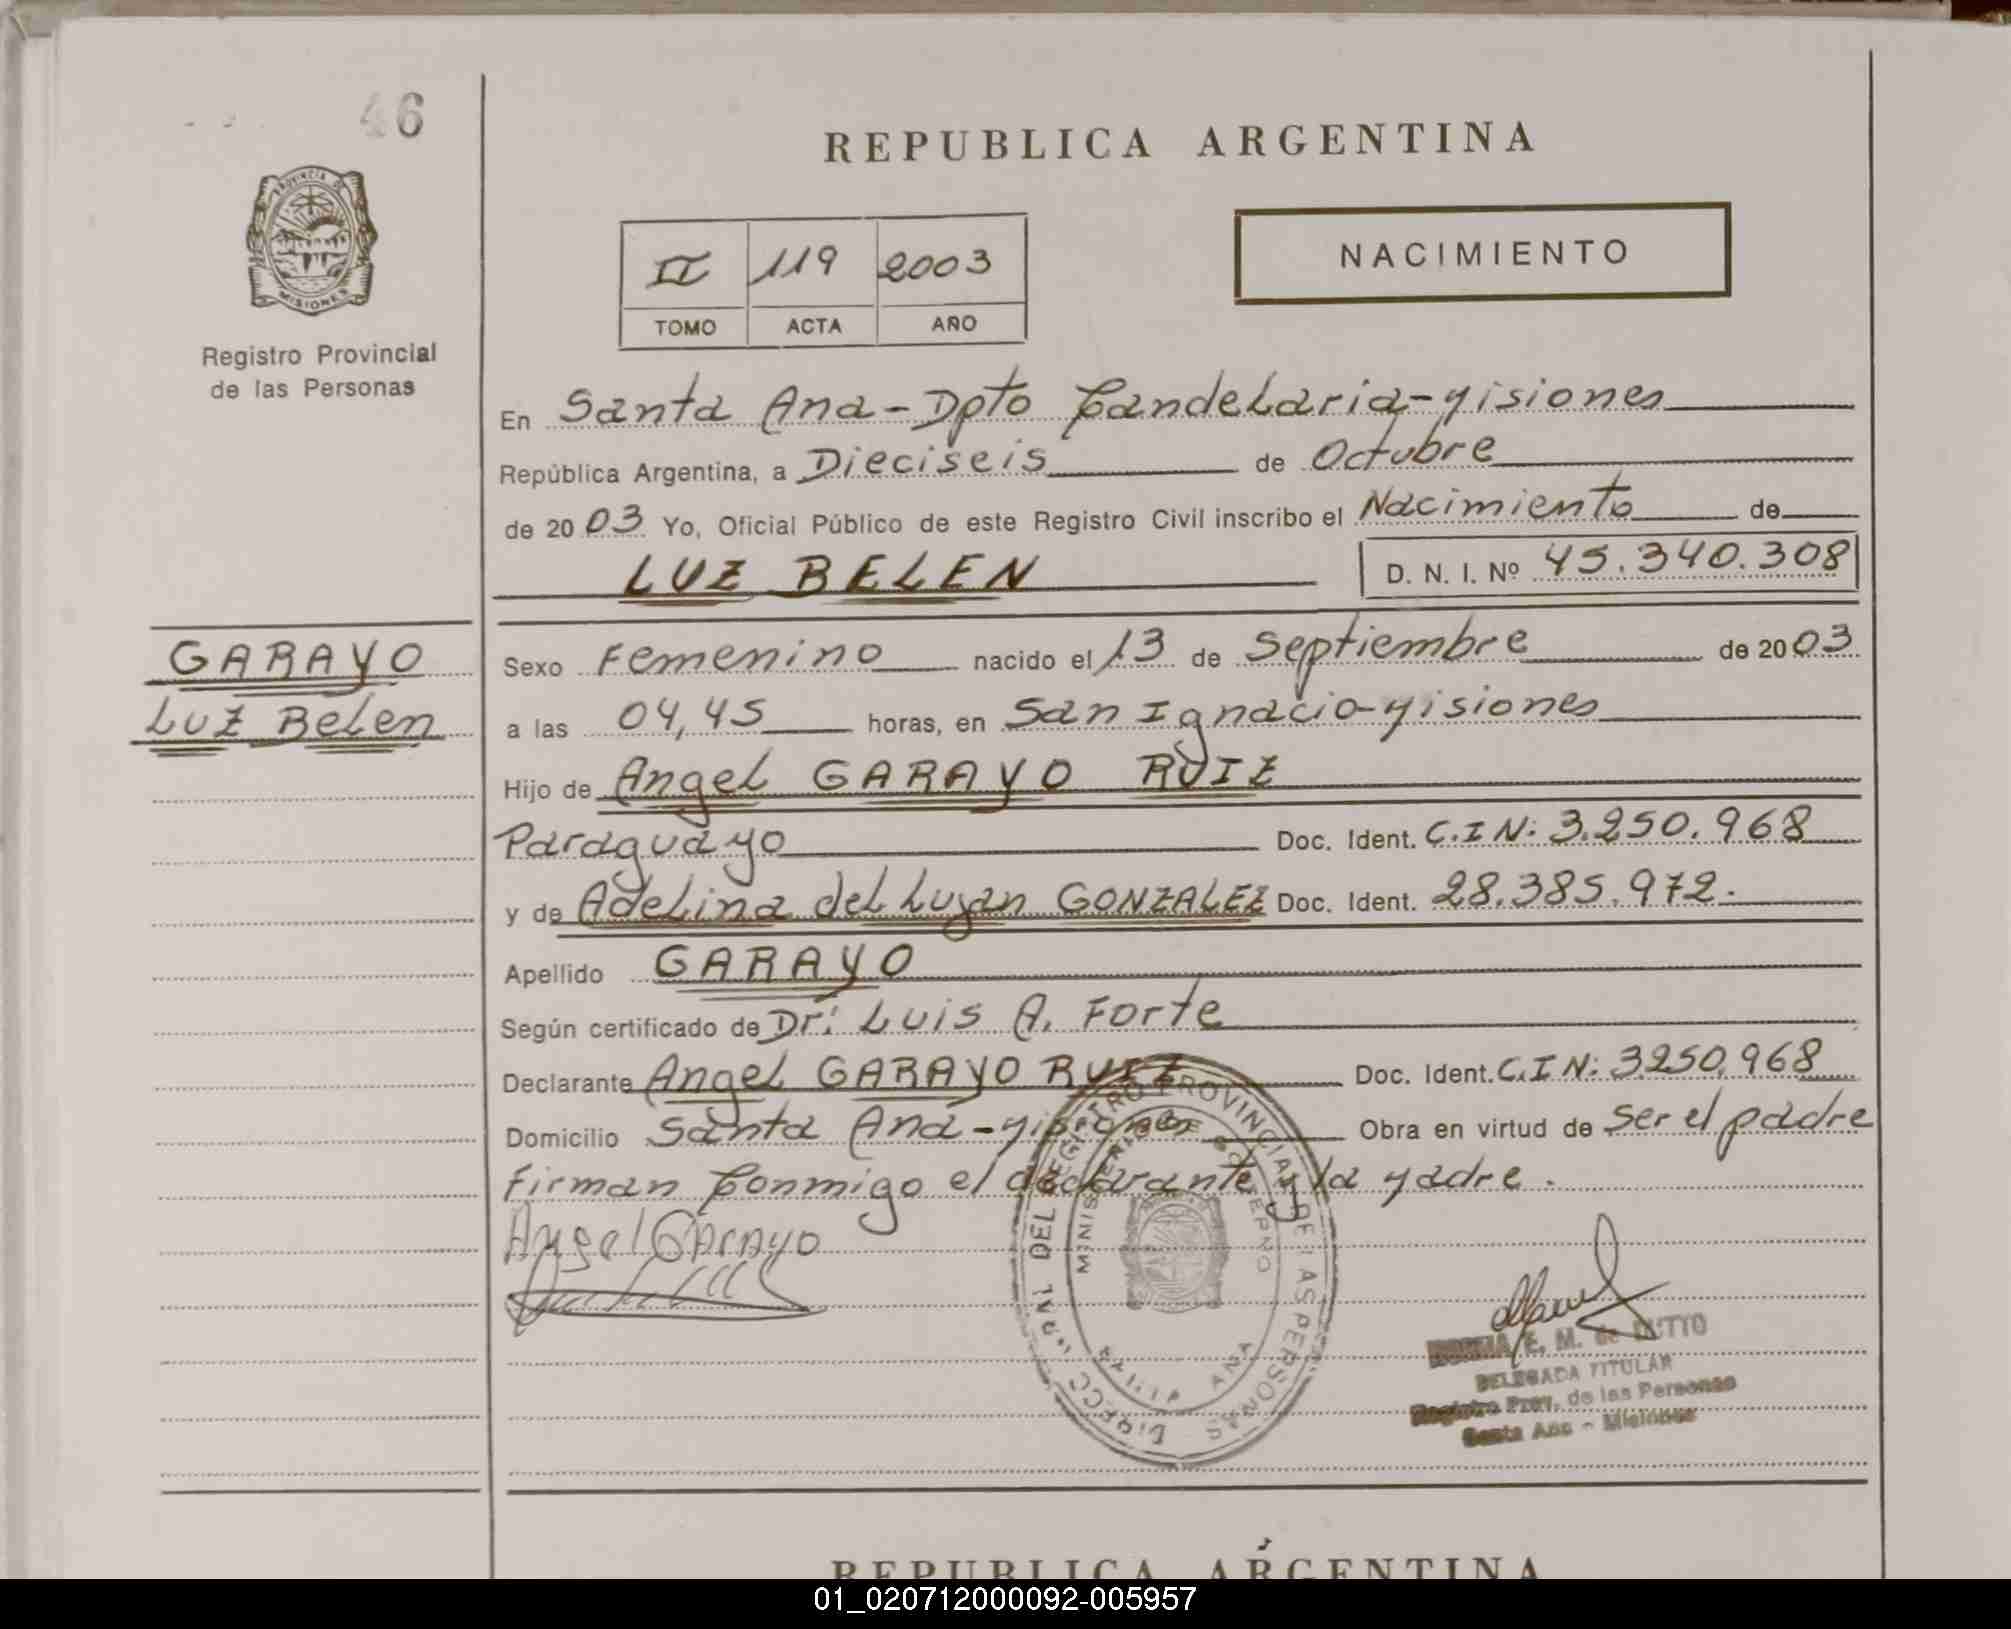 46
REPUBLICA ARGENTINA
PROVINCIA DE
MISIONES
II 119 2003
TOMO ACTA AÑO
NACIMIENTO
Registro Provincial
de las Personas
En Santa Ana - Dpto Candelaria - Misiones
República Argentina, a Dieciseis de Octubre
de 2003 Yo, Oficial Público de este Registro Civil inscribo el Nacimiento de
LUZ BELEN D. N. I. Nº 45.340.308
GARAYO
Luz Belen
Sexo Femenino nacido el 13 de Septiembre de 2003
a las 04,45 horas, en San Ignacio - Misiones
Hijo de Angel GARAYO RUIZ
Paraguayo Doc. Ident. C.I N: 3.250.968
y de Adelina del Lujan GONZALEZ Doc. Ident. 28.385.972.
Apellido GARAYO
Según certificado de Dr: Luis A. Forte
Declarante Angel GARAYO RUIZ Doc. Ident. C.I N: 3.250.968
Domicilio Santa Ana - Misiones Obra en virtud de Ser el padre
Firman Conmigo el declarante y la Madre.
Angel Garayo
DIRECC. GRAL. DEL REGISTRO PROVINCIAL DE LAS PERSONAS
MINISTERIO DE GOBIERNO
SANTA ANA
E. M. de
DELEGADA TITULAR
Registro Prov. de las Personas
Santa Ana - Misiones
REPUBLICA ARGENTINA
01_020712000092-005957